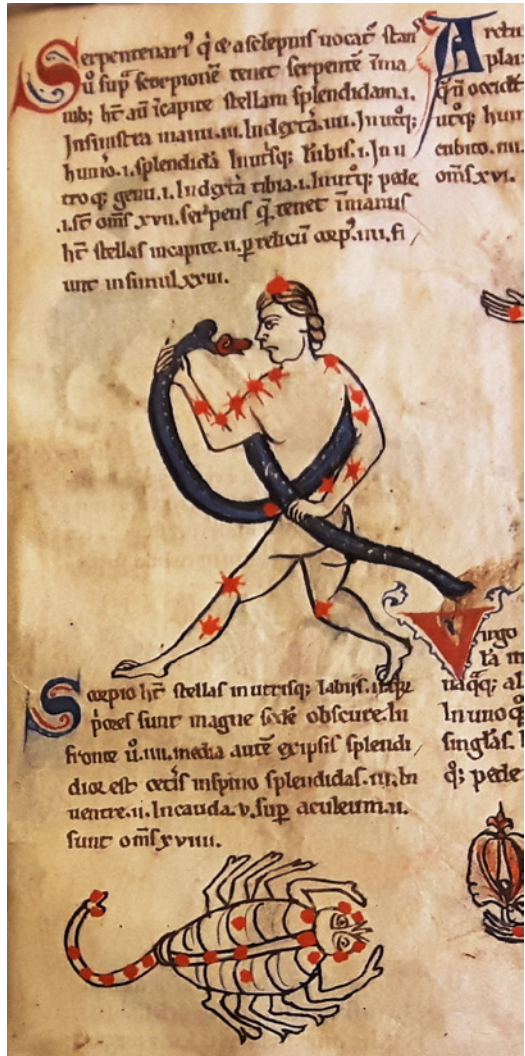 Serpentenari⁹ q̇ & asclepius uocat᷑ stans
ů sup̱ scorpionē tenet serpentē ĩma
nib; hr̄ aū ĩcapite stellam splendidam.ı.
Insinistra manu.ııı. Indext̾a.ıııı. Inut°q;
hum̾o.ı.splendidā Inut̾sq; .ı. In u
troq; genu.ı. Indext̾a tibia.ı. Inut°q; pede
.ı.s̄t oms̄ xvıı. serpens q̄ tenet ĩmanus
hr̄ stellas incapite.ıı. p̱ relicū corp⁹.ıııı. fi
unt insimul xxııı.
Scorpio hr̄ stellas in utrisq; labijs.
p̾ores sunt magne sede obscure. In
fronte ů.ıııı. media autē ex ipsis splendi
dior est cet̾is inspino splendidas.ııı. In
uentre.ıı. Incauda.v. sup̱ aculeum.ıı.
sunt oms̄ xvıııı.
Arctu
q̄ n̄ occidit
utq; hum
cubito.ıııı.
oms̄ xvı.
Virgo
ta
uaq̄q; al
In uno q
singl̄as.
q; pede